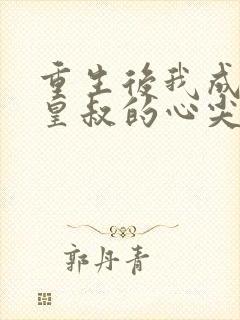 重生後我成
皇叔的心尖
郭丹青